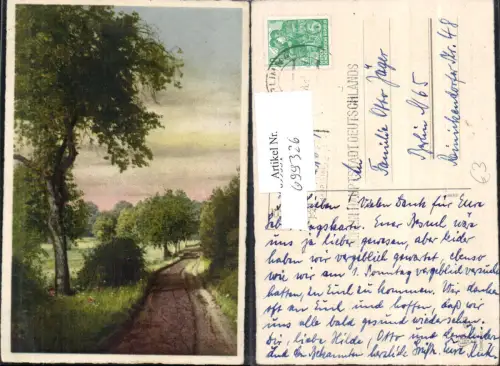 Artikel Nr.
699326
HAUPTSTADT DEUTSCHLANDS
An
Familie Otto Jäger
Berlin N 65
Reinickendorfer Str. 48
63
Lieben Vielen Dank für Eure
Eure Besuch wäre
uns ja lieber gewesen, aber leider
haben wir vergeblich gewartet, ebenso
wie wir am 1. Sonntag vergeblich versucht
hatten, zu Euch zu kommen. Wir denken
oft an Euch und hoffen, daß wir
uns alle bald gesund wiedersehen.
Dir, liebe Hilde, Otto und
und den Bekannten herzliche Grüße, Eure